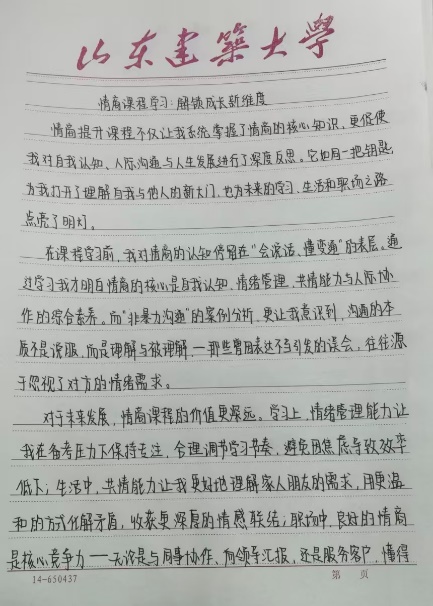 山东建筑大学
情商课程学习:解锁成长新维度
情商提升课程不仅让我系统掌握了情商的核心知识,更促使
我对自我认知、人际沟通与人生发展进行了深度反思。它如同一把钥匙,
为我打开了理解自我与他人的新大门,也为未来的学习、生活和职场之路
点亮了明灯。
在课程学习前,我对情商的认知停留在“会说话、懂变通”的表层。通
过学习我才明白情商的核心是自我认知、情绪管理、共情能力与人际协
作的综合素养。而“非暴力沟通”的案例分析,更让我意识到,沟通的本
质不是说服,而是理解与被理解,——那些曾因表达不当引发的误会,往往源
于忽视了对方的情绪需求。
对于未来发展,情商课程的价值更深远。学习上,情绪管理能力让
我在备考压力下保持专注,合理调节学习节奏,避免因焦虑导致效率
低下;生活中,共情能力让我更好地理解家人朋友的需求,用更温
和的方式化解矛盾,收获更深厚的情感联结;职场中,良好的情商
是核心竞争力——无论是与同事协作、向领导汇报,还是服务客户,懂得
14-650437 第 页